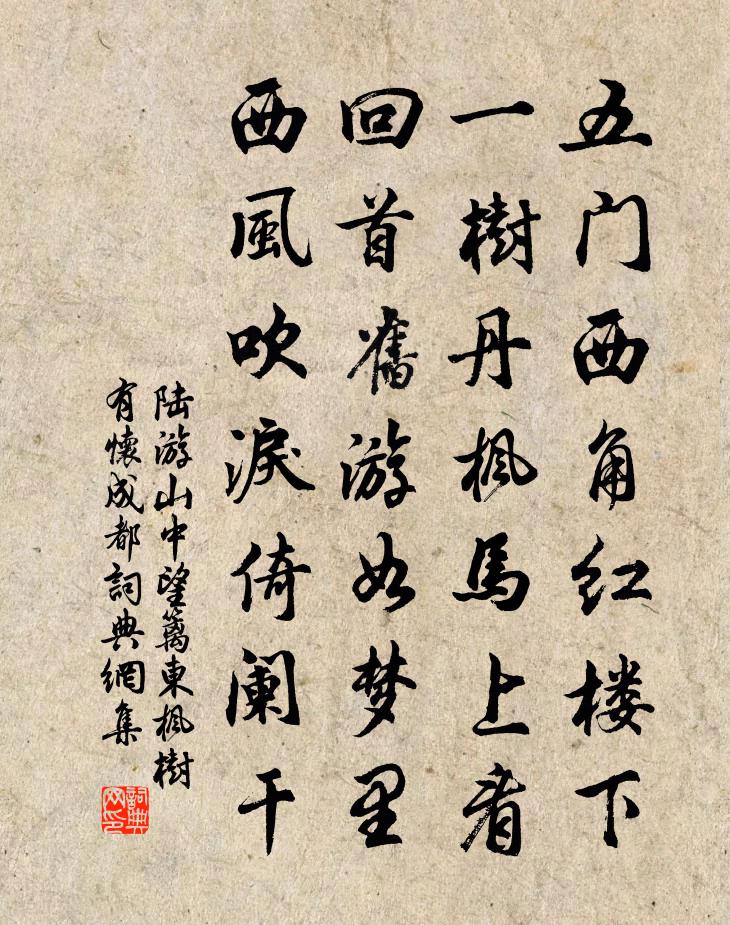 五门西角红楼下
一樹丹楓馬上看
回首舊游如梦里
西風吹淚倚阑干
陆游山中望篱東楓樹
有懷成都詞典網集
詞典
网印